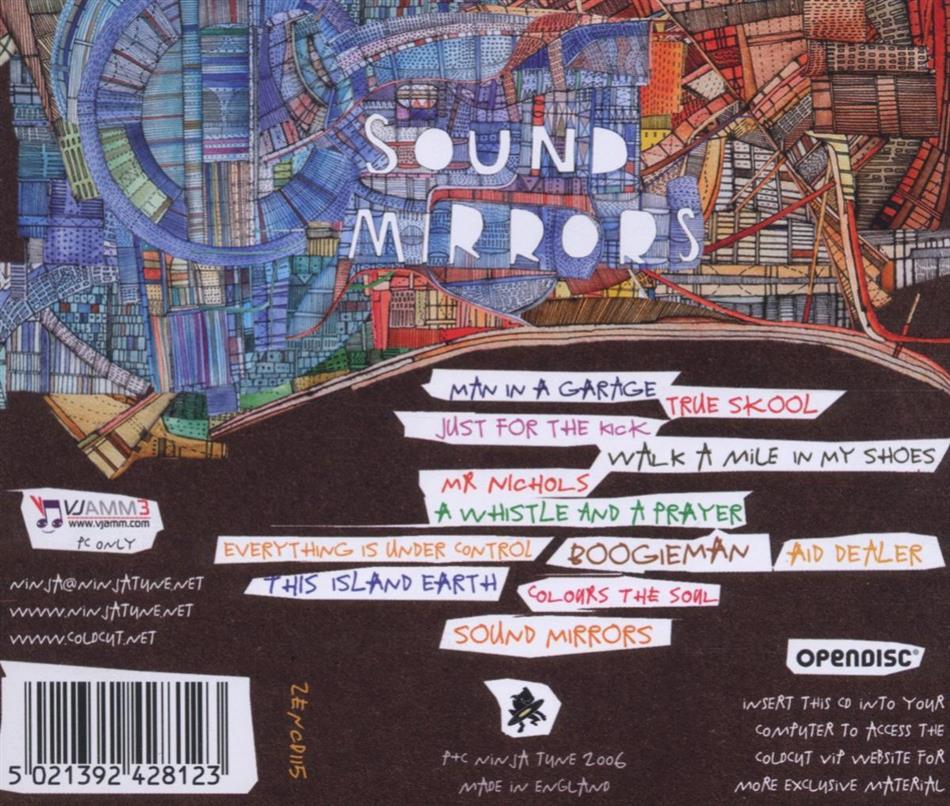 SOUND
MIRRORS
MAN IN A GARAGE
TRUE SKOOL
JUST FOR THE KICK
WALK A MILE IN MY SHOES
MR NICHOLS
A WHISTLE AND A PRAYER
EVERYTHING IS UNDER CONTROL
BOOGIEMAN
AID DEALER
THIS ISLAND EARTH
COLOURS THE SOUL
SOUND MIRRORS
VJAMM3
www.vjamm.com
PC ONLY
NINJA@NINJATUNE.NET
WWW.NINJATUNE.NET
WWW.COLDCUT.NET
5 021392 428123
ZENCD115
P+C NINJA TUNE 2006
MADE IN ENGLAND
OPENDISC®
INSERT THIS CD INTO YOUR
COMPUTER TO ACCESS THE
COLDCUT VIP WEBSITE FOR
MORE EXCLUSIVE MATERIAL